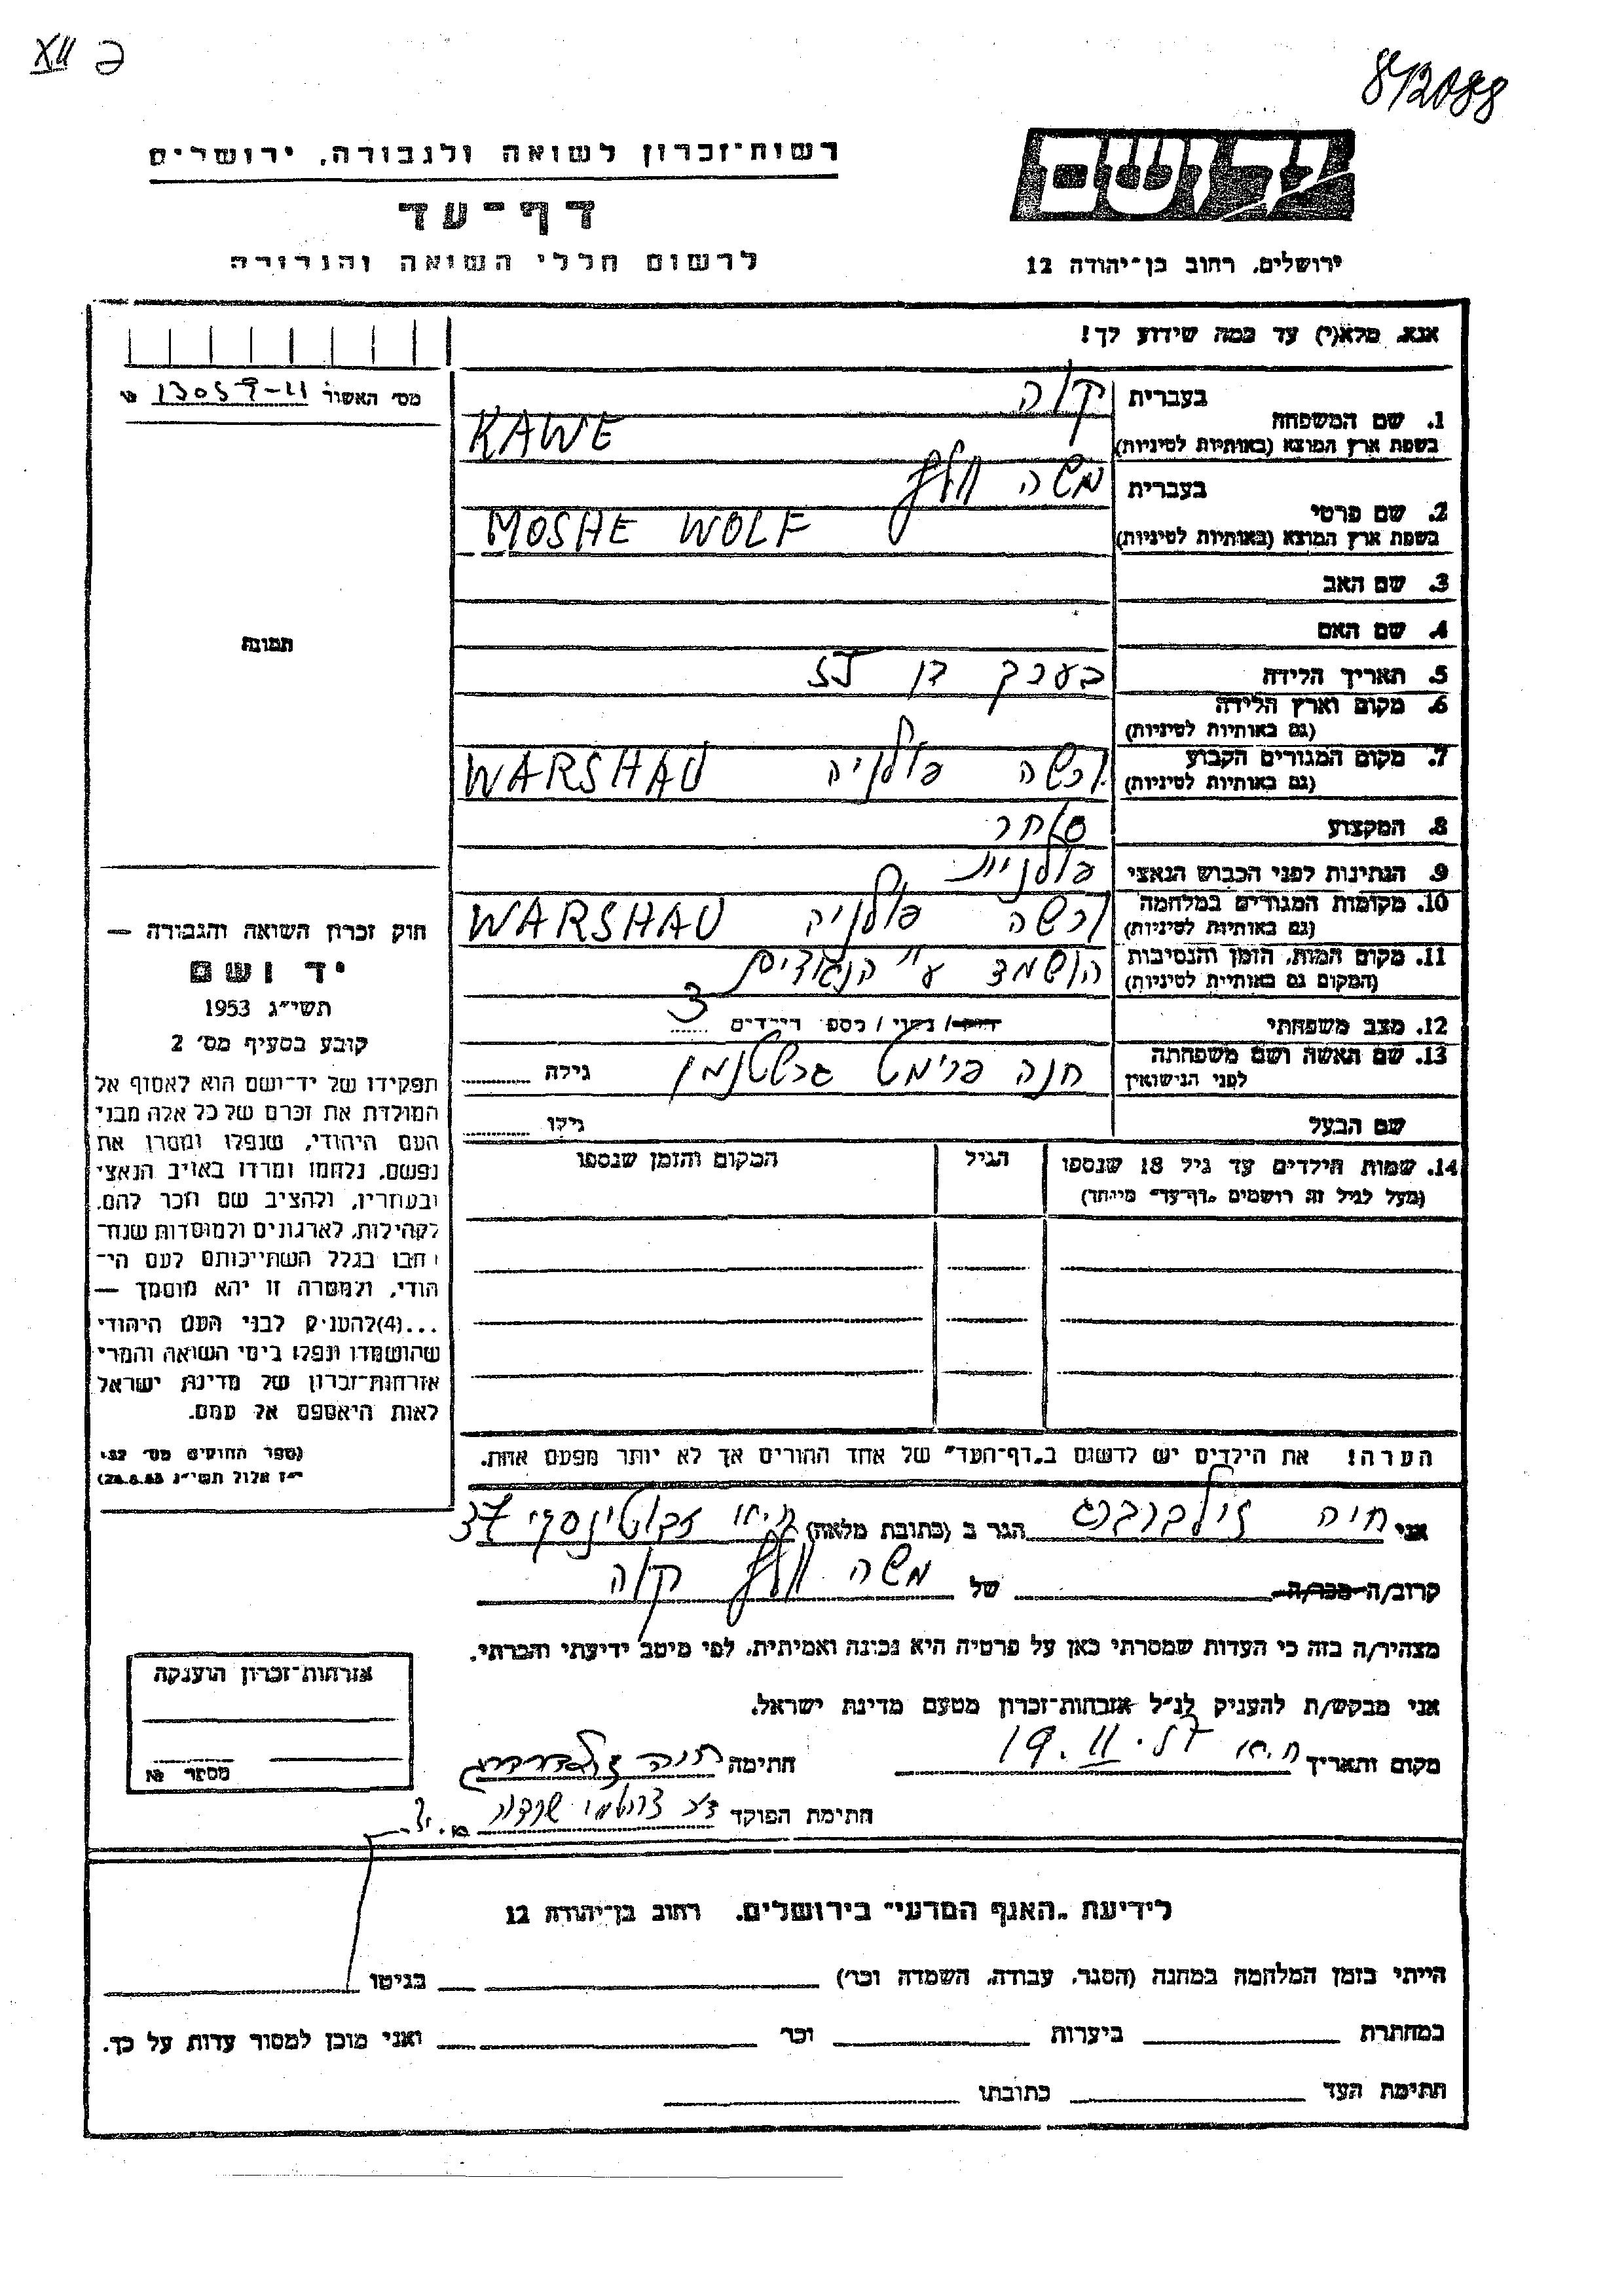 812088
XII
רשות־זכרון לשואה ולגבורה, ירושלים
יד ושם
דף־עד
ירושלים, רחוב בן־יהודה 12
לרשום חללי השואה והגבורה
אנא, מלא(י) עד כמה שידוע לך!
בעברית קוה
1. שם המשפחה
בשפת ארץ המוצא (באותיות לטיניות) KAWE
בעברית משה וולף
2. שם פרטי
בשפת ארץ המוצא (באותיות לטיניות) MOSHE WOLF
3. שם האב
4. שם האם
5. תאריך הלידה בערך בן
6. מקום וארץ הלידה
(גם באותיות לטיניות)
7. מקום המגורים הקבוע ורשה פולניה WARSHAU
(גם באותיות לטיניות)
8. המקצוע סוחר
9. הנתינות לפני הכבוש הנאצי פולנית
10. מקומות המגורים במלחמה ורשה פולניה WARSHAU
(גם באותיות לטיניות)
11. מקום המות, הזמן והנסיבות הושמד ע״י הנאצים
(המקום גם באותיות לטיניות)
12. מצב משפחתי רווק / נשוי / מספר הילדים 3
13. שם האשה ושם משפחתה חנה פרימט גרשטנמן גילה
לפני הנישואין
שם הבעל גילו
14. שמות הילדים עד גיל 18 שנספו הגיל המקום והזמן שנספו
(מעל לגיל זה רושמים „דף־עד״ מיוחד)
הערה! את הילדים יש לרשום ב„דף־העד״ של אחד ההורים אך לא יותר מפעם אחת.
מס׳ האשור
תמונה
חוק זכרון השואה והגבורה —
יד ושם
תשי״ג 1953
קובע בסעיף מס׳ 2
תפקידו של יד־ושם הוא לאסוף אל
המולדת את זכרם של כל אלה מבני
העם היהודי, שנפלו ומסרו את
נפשם, נלחמו ומרדו באויב הנאצי
ובעוזריו, ולהציב שם וזכר להם,
לקהילות, לארגונים ולמוסדות שנח־
רבו בגלל השתייכותם לעם הי־
הודי, ולמטרה זו יהא מוסמך —
...(4)להעניק לבני העם היהודי
שהושמדו ונפלו בימי השואה והמרי
אזרחות־זכרון של מדינת ישראל
לאות היאספם אל עמם.
(ספר החוקים מס׳ 132,
י״ז אלול תשי״ג 28.8.53)
אני חיה זילברברג הגר ב (כתובת מלאה) ת״א ז׳בוטינסקי 37
קרוב/ה מכר/ה של משה וולף קוה
מצהיר/ה בזה כי העדות שמסרתי כאן על פרטיה היא נכונה ואמיתית, לפי מיטב ידיעתי והכרתי.
אני מבקש/ת להעניק לנ״ל אזרחות־זכרון מטעם מדינת ישראל.
מקום ותאריך ת״א 19.11.57 חתימה חיה זילברברג
חתימת הפוקד
אזרחות־זכרון הוענקה
מספר №
לידיעת „האגף המדעי״ בירושלים, רחוב בן־יהודה 12
הייתי בזמן המלחמה במחנה (הסגר, עבודה, השמדה וכו׳) בגיטו
במחתרת ביערות וכו׳ ואני מוכן למסור עדות על כך.
חתימת העד כתובתו